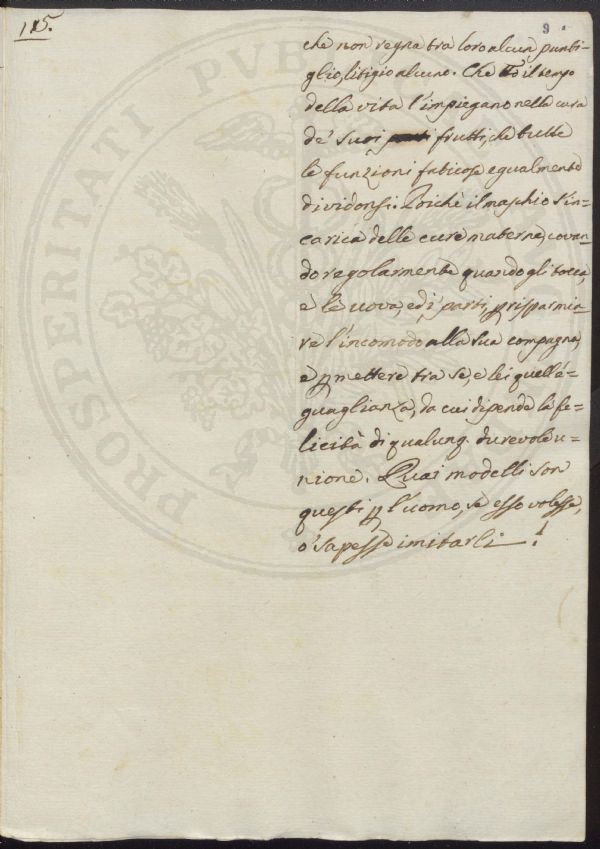 115.
9
che non regna tra loro alcun punti-
glio, litigio alcuno. Che il tempo
della vita l'impiegano nella cura
de' suoi frutti, che tutte
le funzioni faticose egualmente
dividonsi. Poichè il maschio s'in-
carica delle cure materne, covan-
do regolarmente quando gli tocca,
e le uova, ed i parti, p risparmia-
re l'incomodo alla sua compagna,
e p mettere tra se, e lei quell'e-
guaglianza, da cui dipende la fe-
licità di qualunq. durevole u-
nione. Quai modelli son
questi p l'uomo, se esso volesse,
o' sapesse imitarli !
PROSPERITATI PUBLICAE